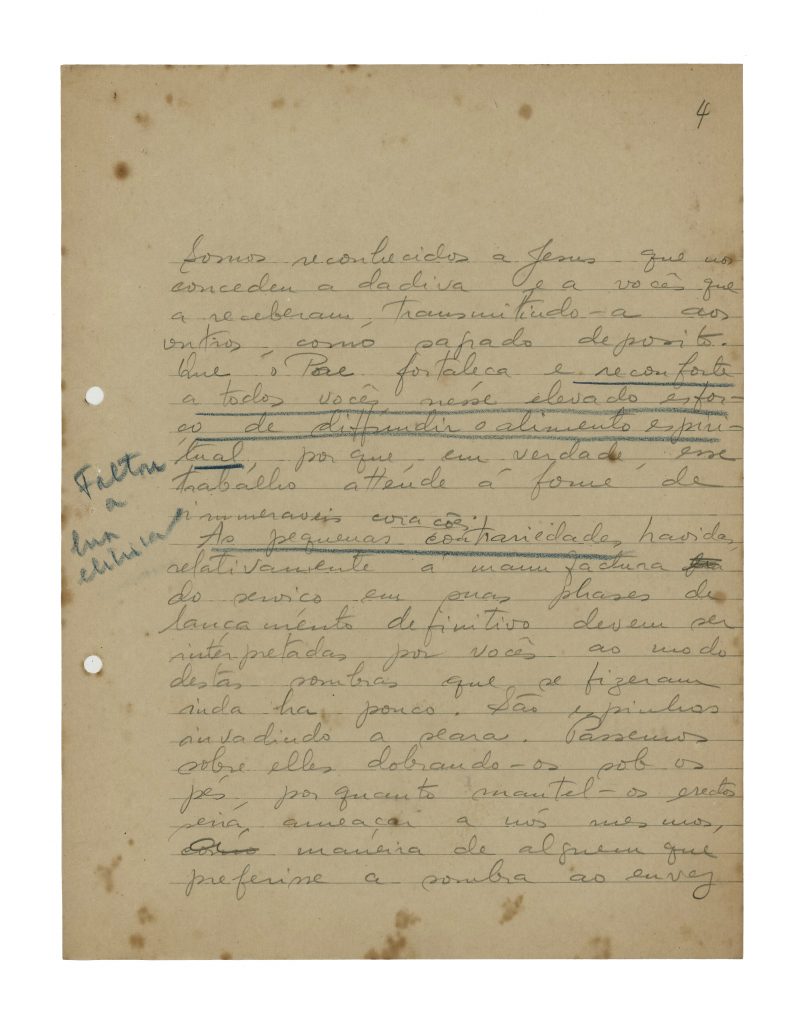 4
Somos reconhecidos a Jesus que nos
concedeu a dadiva e a vocês que
a receberam, transmitindo-a aos
outros, como sagrado deposito.
Que o Pae fortaleça e reconforte
a todos vocês nesse elevado esfor-
ço de diffundir o alimento espiri-
tual, por que, em verdade, esse
trabalho attende á fome de
innumeraveis corações!
As pequenas contrariedades havidas,
relativamente á manufactura
do serviço em suas phases de
lançamento definitivo devem ser
interpretadas por vocês ao modo
destas sombras que se fizeram
inda ha pouco. São espinhos
invadindo a seara. Passemos
sobre elles dobrando-os sob os
pés, porquanto mantel-os erectos
será ameaçar a nós mesmos,
como maneira de alguem que
preferisse a sombra ao envez
Faltou
a
luz
elétrica